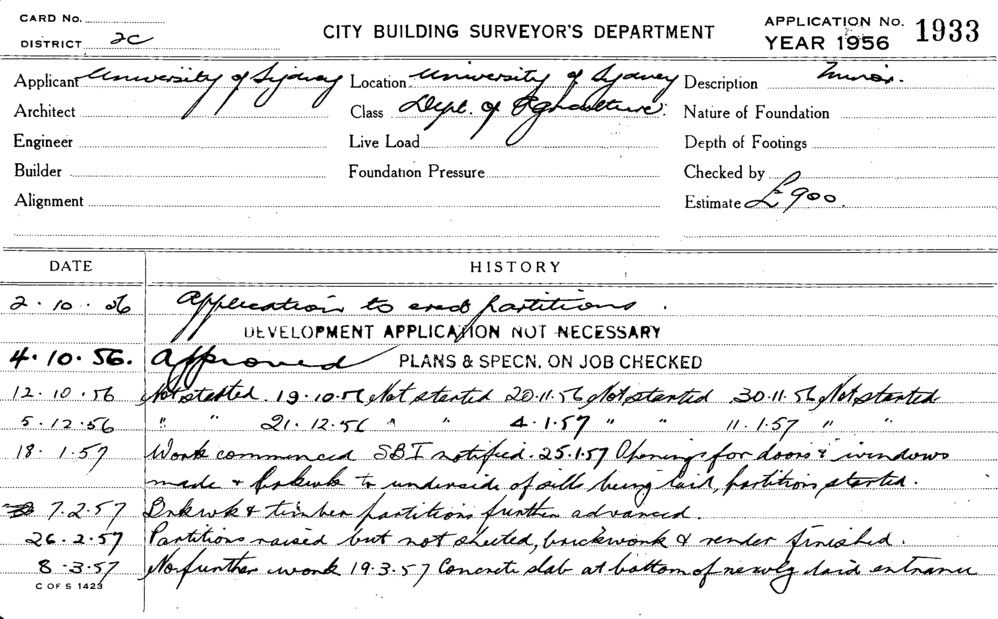 CARD No.
DISTRICT 2C
CITY BUILDING SURVEYOR'S DEPARTMENT
APPLICATION No. 1933
YEAR 1956
Applicant University of Sydney Location University of Sydney Description Minor.
Architect Class Dept. of Agriculture. Nature of Foundation
Engineer Live Load Depth of Footings
Builder Foundation Pressure Checked by
Alignment Estimate £900.
DATE HISTORY
2.10.56 Application to erect partitions.
DEVELOPMENT APPLICATION NOT NECESSARY
4.10.56. Approved PLANS & SPECN. ON JOB CHECKED
12.10.56 Not started. 19.10.56 Not started 20.11.56 Not started 30.11.56 Not started
5.12.56 " " 21.12.56 " " 4.1.57 " " 11.1.57 " "
18.1.57 Work commenced SBI notified. 25.1.57 Openings for doors & windows
made & brkwk to underside of sills being laid, partitions started.
7.2.57 Brkwk & timber partitions further advanced.
26.2.57 Partitions raised but not sheeted, brickwork & render finished.
8.3.57 No further work 19.3.57 Concrete slab at bottom of newly laid entrance
C OF S 1423